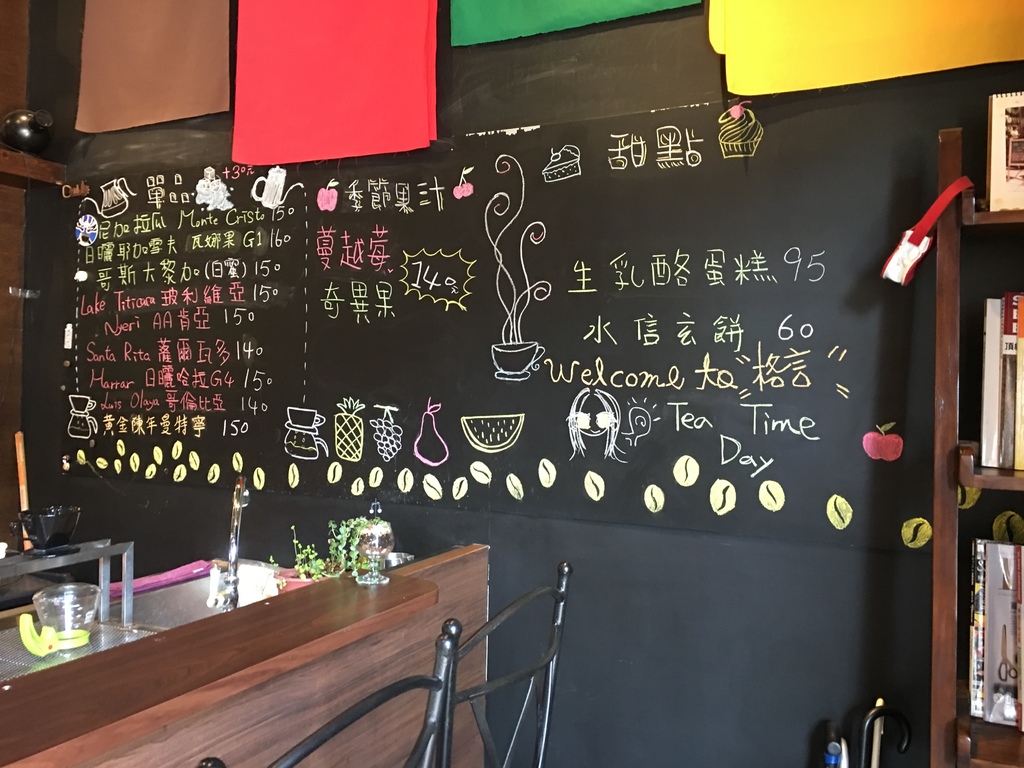 單品 +30元
尼加拉瓜 Monte Cristo 150
日曬耶加雪夫 瓦娜果 G1 160
哥斯大黎加(白蜜) 150
Lake Titicaca 玻利維亞 150
Nyeri AA 肯亞 150
Santa Rita 薩爾瓦多 140
Harrar 日曬哈拉G4 150
Luis Olaya 哥倫比亞 140
黃金陳年曼特寧 150
季節果汁
蔓越莓
奇異果
140元
甜點
生乳酪蛋糕 95
水信玄餅 60
Welcome to "格言"
Tea Time
Day